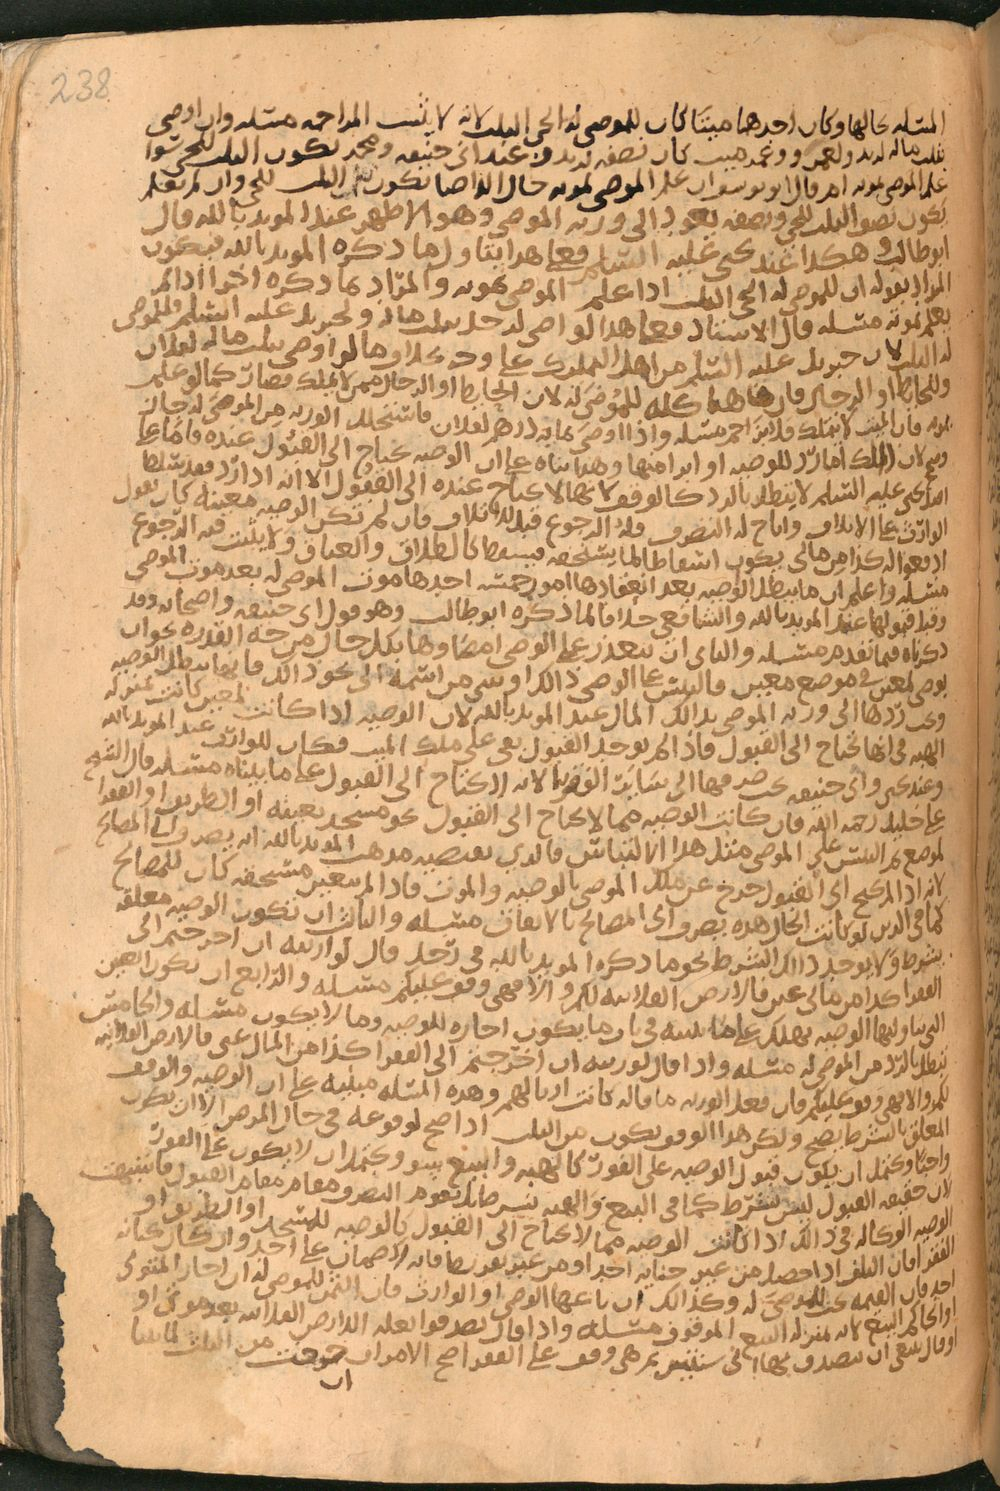 238
المسله بحالها وكان احدهما ميتا كان للموصى له الحي الثلث لانه لا يثبت المزاحمه مسله وان اوصى
بثلث ماله لزيد ولعمرو وعمرو ميت كان نصفه لزيد وعند ابى حنيفه ومحمد يكون الثلث للحي سوا
علم الموصى بموته ام قال ابو يوسف ان علم الموصى بموته حال الايصا يكون الثلث للحي وان لم يعلم
يكون نصف الثلث للحي ونصفه يعود الى ورثة الموصى وهو الاظهر عند المويد بالله قال
ابوطالب وهكذا عند يحيى عليه السلم فعلى هذا يتاول ما ذكره المويد بالله فيكون
المراد بقوله ان للموصى له الحي الثلث اذا علم الموصى بموته والمراد بما ذكره اخرا اذا لم
يعلم بموته مسله قال الاستاد فعلى هذا لو اوصى لرجل بثلث ماله ولجبريل عليه السلم فللموصى
له الثلث لان جبريل عليه السلم من اهل التملك
وللحايط او الريح فان هذا كله للموصى له لان الحايط او الريح مما لا يملك فصار كما لو علم
بموته فان الميت لا يملك فلا يزاحم مسله واذا اوصى بماية درهم لفلان فاستحلله الورثه من الموصى له جاز
وصح لان ذلك اما رد للوصيه او ابرا منها وهذا بناه على ان الوصيه تحتاج الى القبول عنده فاما على
اصل يحيى عليه السلم لا يبطل بالرد كالوقف لانها لا تحتاج عنده الى القبول الا انه اذا رد فقد سلط
الوارث على الاتلاف واباح له التصرف فله الرجوع قبل الاتلاف فان لم تكن الوصيه معينه كان يقول
ادفعوا له كذا من مالى يكون اسقاطا لما يستحقه فيسقط كالطلاق والعتاق ولا يثبت فيه الرجوع
مسله واعلم ان ما يبطل الوصيه بعد انعقادها امور خمسه احدها موت الموصى له بعد موت الموصى
وقبل قبولها عند المويد بالله والشافعي خلافا لما ذكره ابو طالب وهو قول ابى حنيفه واصحابه وقد
ذكرناه فيما تقدم مسله والثانى ان يتعذر على الوصى امضاوها بكل حال من جهة القدره نحو ان
يوصى لمعين في موضع معين فالتبس على الوصى ذلك او نسى من اسمه الى نحو ذلك فانها تبطل الوصيه
ويجب ردها الى ورثة الموصى بذلك المال عند المويد بالله لان الوصيه اذا كانت لمعين كانت بمنزلة
الهبه في انها تحتاج الى القبول فاذا لم يوجد القبول بقي على ملك الميت فكان للوارث عند المويد بالله
وعند يحيى وابى حنيفه يجب صرفها الى ساير الفقرا لانه لا تحتاج الى القبول على ما بيناه مسله قال الشيخ
على خليل رحمه الله فان كانت الوصيه مما لا يحتاج الى القبول نحو مسجد بعينه او الطريق او الفقرا
لموضع ثم التبس على الموصى مثل هذا الالتباس فالذي يقتضيه مذهب المويد بالله ان يصرف الى المصالح
لانه اذا لم يحتج الى القبول خرج عن ملك الموصى بالوصيه والموت فاذا لم يتعين مستحقه كان للمصالح
كما في الدين لو كانت الحال هذه يصرف الى المصالح بالاتفاق مسله والثالث ان تكون الوصيه معلقه
بشرط ولا يوجد ذلك الشرط نحو ما ذكره المويد بالله فى رجل قال لوارثه ان اخرجتم الى
الفقرا كذا من مالى عنى فالارض الفلانيه لكم والا فهي وقف عليكم مسله والرابع ان تكون العين
التي تناولها الوصيه تهلك على ما نبينه في باب ما يكون اجازه للوصيه وما لا يكون مسله والخامس
تبطل بالرد من الموصى له مسله واذا قال لورثته ان اخرجتم الى الفقرا كذا من المال عنى فالارض الفلانيه
لكم والا فهى وقف عليكم فان فعل الورثه ما قاله كانت ارثا لهم وهذه المسله مبنيه على ان الوصيه والوقف
المعلق بالشرط يصح ولكن هذا الوقف يكون من الثلث اذا صح لوقوعه فى حال المرض الا ان يكون
واجبا ويحتمل ان يكون قبول الوصيه على الفور كالهبه والبيع ويحتمل ان لا يكون على الفور
لان حقيقة القبول ليس بشرط كما فى البيع والهبه
الوصيه الوكاله فى ذلك اذا كانت الوصيه مما لا يحتاج الى القبول كالوصيه للمسجد او الطريق او
الفقرا فان التلف اذا حصل من غير جنايه احد او من غير تفريط فانه لا ضمان على احد وان كان بجنايه
احد فان القيمه تجب للموصى له وكذلك ان باعها الوصى او الوارث فان الثمن للموصى له ان اجاز المتولى
او الحاكم البيع لانه بمنزلة البيع الموقوف مسله واذا قال تصدقوا بغلة الدار والارض الفلانيه بعد موتى او
او قال ينبغى ان تتصدقوا بها الى سنتين ثم هى وقف على الفقرا صح الامران خرجت من الثلث لما بينا
ان